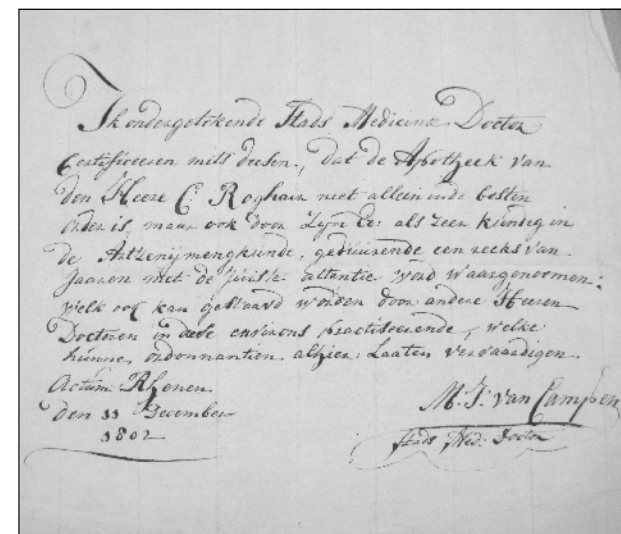 Ik ondergetekende Stads Medicinæ Doctor
Certificeeren mits deesen, dat de Apotheek van
den Heere C. Roghair niet alleen in de besten
order is, maar ook door Zyn Ed: als zeer kundig in
de Artzenijmengkunde, geduurende een reeks van
Jaaren met de juiste attentie word waargenomen:
welk ook kan gestaavd worden door andere Heeren
Doctoren in deese environs practiseerende, welke
hunne ordonnantien alhier Laaten vervaardigen.
Actum Rhenen
den 11 December
1802
M: J: van Campen
Stads Med: Doctor